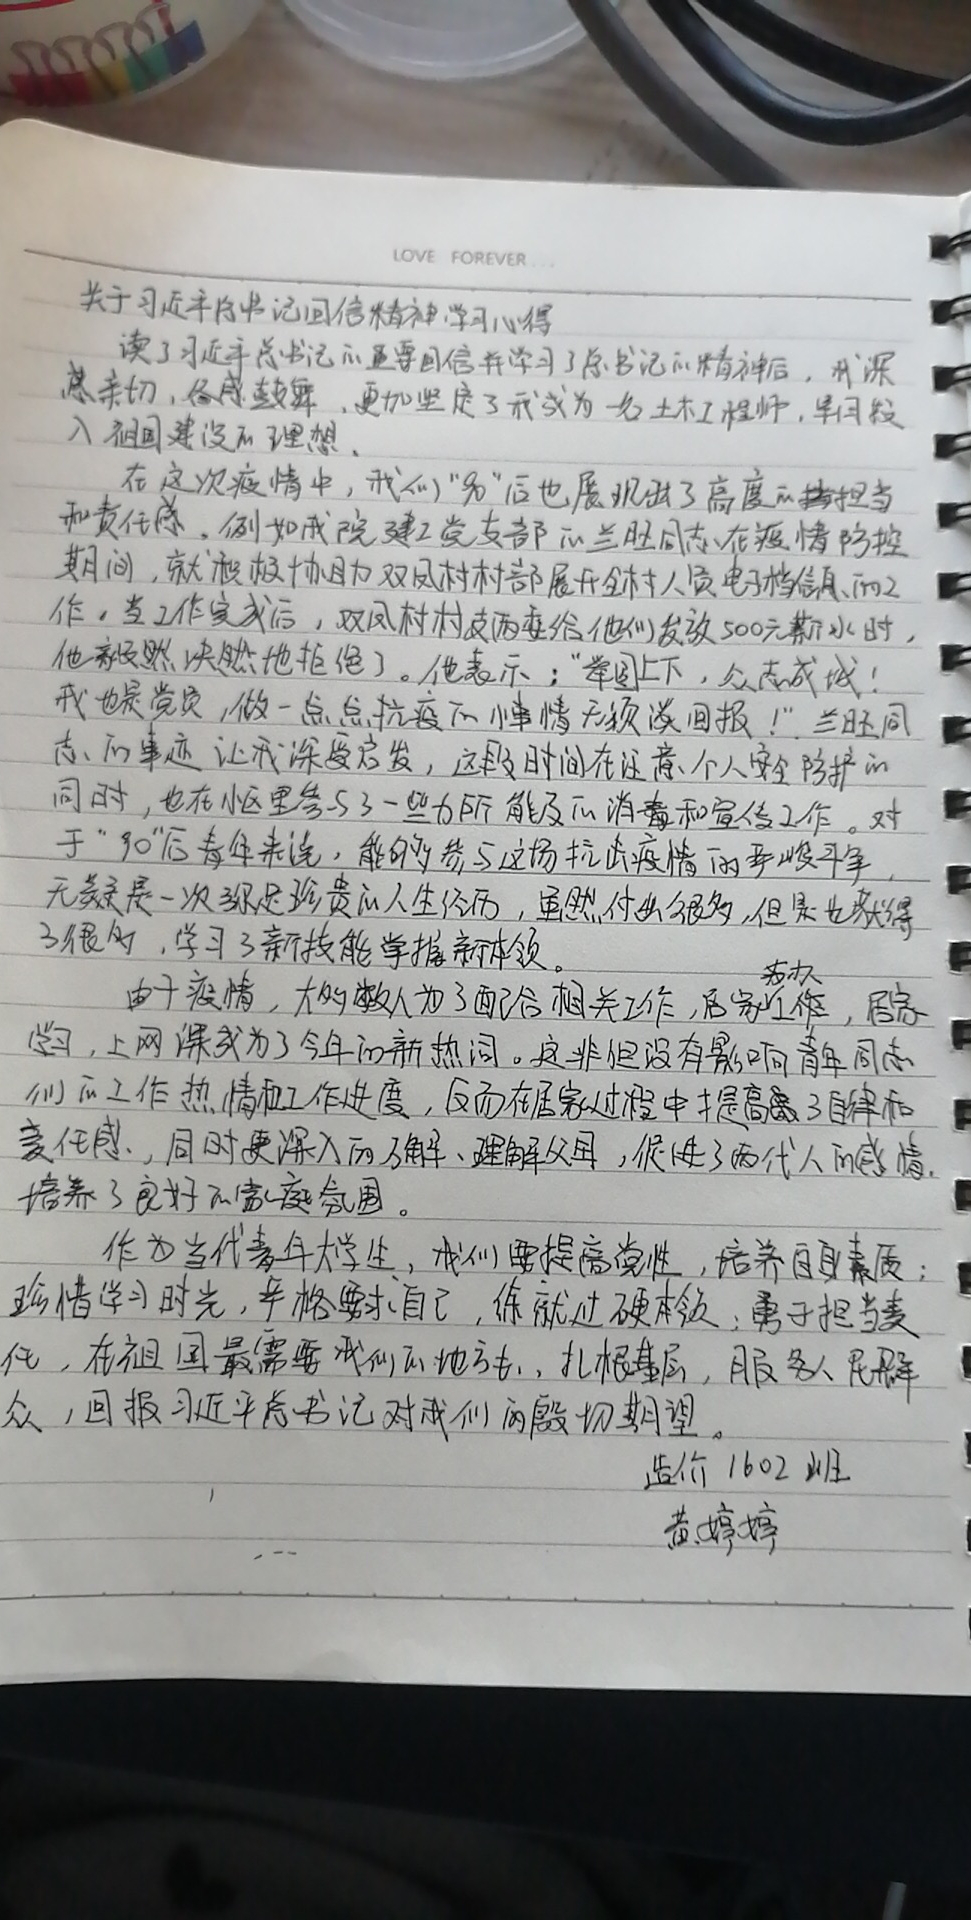 LOVE FOREVER...
关于习近平总书记回信精神学习心得
读了习近平总书记的重要回信并学习了总书记的精神后，我深
感亲切，备感鼓舞，更加坚定了我成为一名土木工程师，早日投
入祖国建设的理想。
在这次疫情中，我们"90"后也展现出了高度的担当
和责任感。例如我院建工党支部的兰旺同志在疫情防控
期间，就积极协助双凤村村部展开全村人员电子档信息的工
作。当工作完成后，双凤村村支两委给他们发放500元薪水时，
他毅然决然地拒绝了。他表示："举国上下，众志成城！
我也是党员，做一点点抗疫的小事情无须谈回报！"兰旺同
志的事迹让我深受启发，这段时间在注意个人安全防护的
同时，也在小区里参与了一些力所能及的消毒和宣传工作。对
于"90"后青年来说，能够参与这场抗击疫情的严峻斗争，
无疑是一次弥足珍贵的人生经历，虽然付出很多，但是也获得
了很多，学习了新技能掌握新本领。
由于疫情，大多数人为了配合相关工作，居家办公，居家
学习，上网课成为了今年的新热词。这非但没有影响青年同志
们的工作热情和工作进度，反而在居家过程中提高了自律和
责任感，同时更深入的了解、理解父母，促进了两代人的感情，
培养了良好的家庭氛围。
作为当代青年大学生，我们要提高党性，培养自身素质；
珍惜学习时光，严格要求自己，练就过硬本领；勇于担当责
任，在祖国最需要我们的地方去，扎根基层，服务人民群
众，回报习近平总书记对我们的殷切期望。
造价1602班
黄婷婷